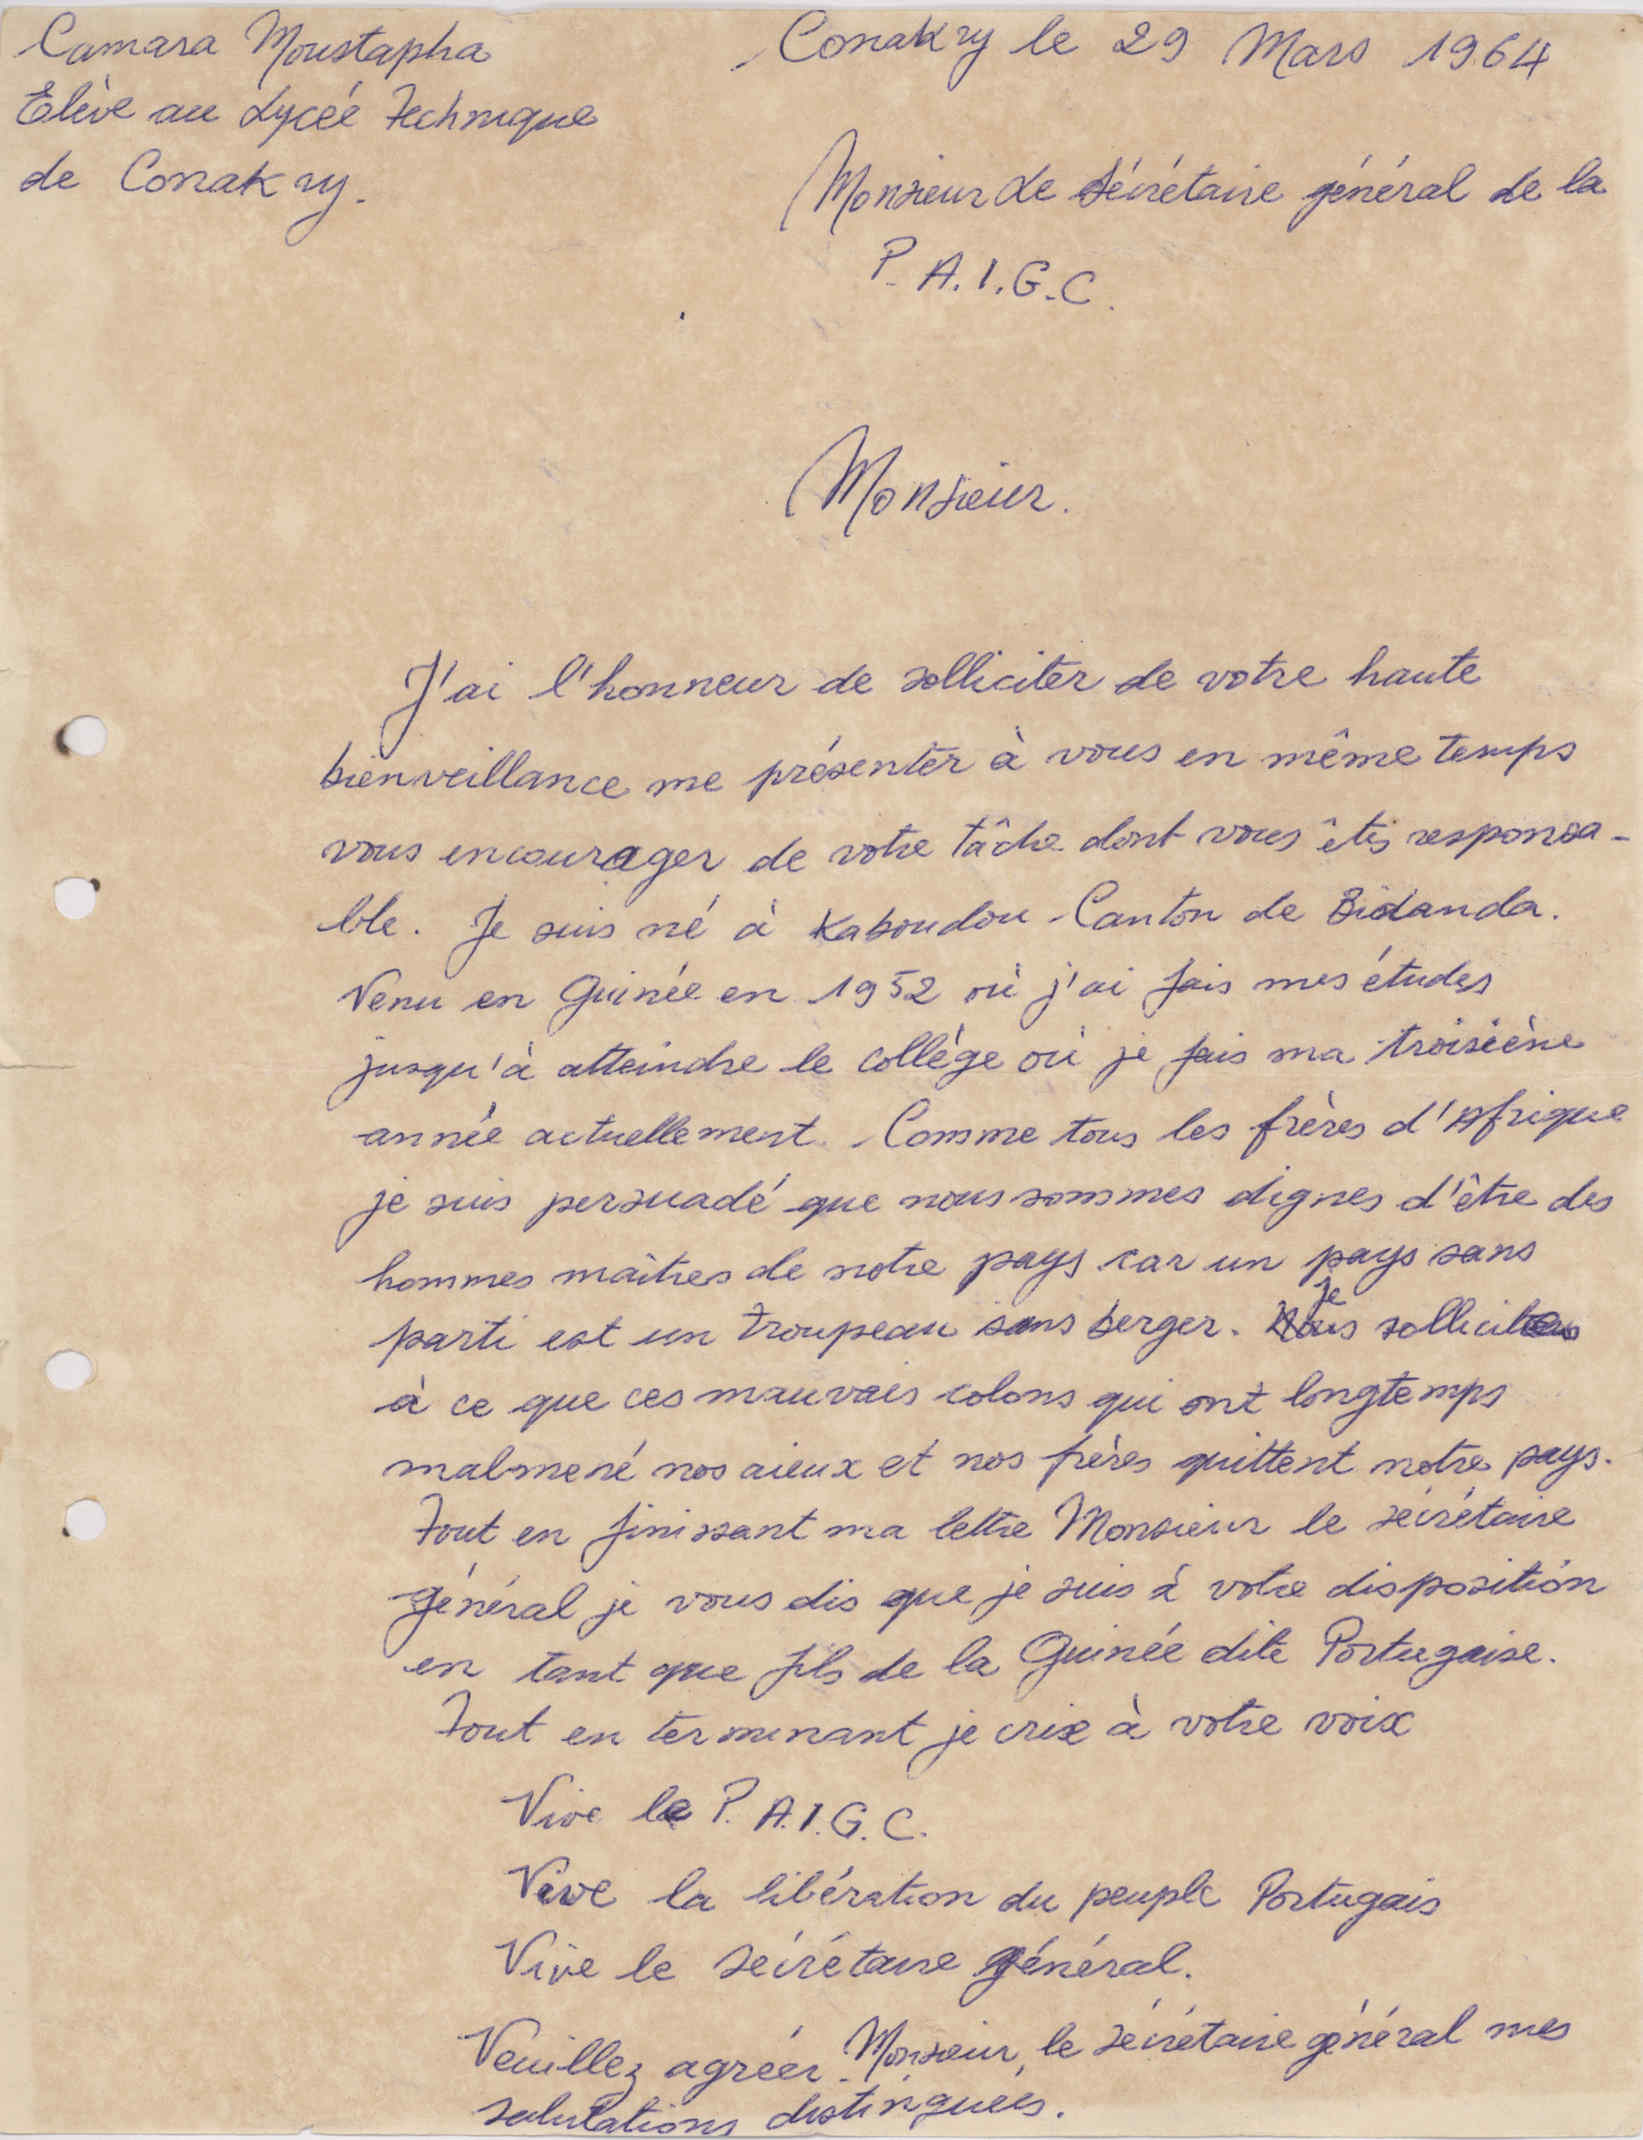 Camara Moustapha
Conakry le 29 Mars 1964
Elève au Lycée Technique
de Conakry.
Monsieur Le sécrétaire général de la
P.A.I.G.C.
Monsieur.
J'ai l'honneur de solliciter de votre haute
bienveillance me présenter à vous en même temps
vous encourager de votre tâche dont vous êtes responsa-
ble. Je suis né à Kaboudou - Canton de Bidanda.
Venu en Guinée en 1952 où j'ai fais mes études
jusqu'à atteindre le collège où je fais ma troisiène
année actuellement. Comme tous les frères d'Afrique
je suis persuadé que nous sommes dignes d'être des
hommes maîtres de notre pays car un pays sans
parti est un troupeau sans berger. je sollicite
à ce que ces mauvais colons qui ont longtemps
malmené nos aieux et nos frères quittent notre pays.
Tout en finissant ma lettre Monsieur le sécrétaire
général je vous dis que je suis à votre disposition
en tant que fils de la Guinée dite Portugaise.
Tout en terminant je crie à votre voix
Vive le P.A.I.G.C.
Vive la libération du peuple Portugais
Vive le sécrétaire général.
Veuillez agréer Monsieur le sécrétaire général mes
salutations distinguées.